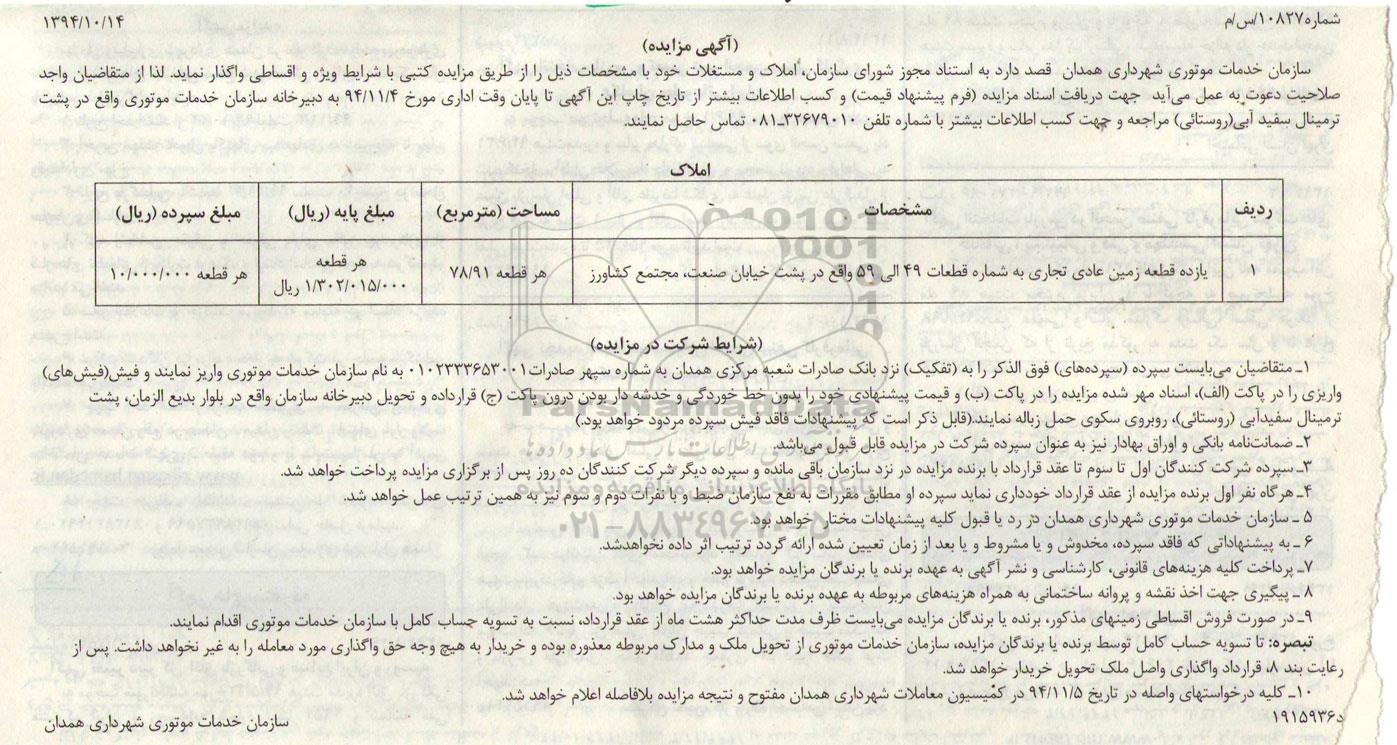 شماره۱۰۸۲۷/س/م
۱۳۹۴/۱۰/۱۴
(آگهی مزایده)
سازمان خدمات موتوری شهرداری همدان قصد دارد به استناد مجوز شورای سازمان، املاک و مستغلات خود با مشخصات ذیل را از طریق مزایده کتبی با شرایط ویژه و اقساطی واگذار نماید. لذا از متقاضیان واجد
صلاحیت دعوت به عمل می‌آید جهت دریافت اسناد مزایده (فرم پیشنهاد قیمت) و کسب اطلاعات بیشتر از تاریخ چاپ این آگهی تا پایان وقت اداری مورخ ۹۴/۱۱/۴ به دبیرخانه سازمان خدمات موتوری واقع در پشت
ترمینال سفید آبی(روستائی) مراجعه و جهت کسب اطلاعات بیشتر با شماره تلفن ۳۲۶۷۹۰۱۰-۰۸۱ تماس حاصل نمایند.
املاک
ردیف مشخصات مساحت (مترمربع) مبلغ پایه (ریال) مبلغ سپرده (ریال)
۱ یازده قطعه زمین عادی تجاری به شماره قطعات ۴۹ الی ۵۹ واقع در پشت خیابان صنعت، مجتمع کشاورز هر قطعه ۷۸/۹۱ هر قطعه ۱/۳۰۲/۰۱۵/۰۰۰ ریال هر قطعه ۱۰/۰۰۰/۰۰۰
(شرایط شرکت در مزایده)
۱ـ متقاضیان می‌بایست سپرده (سپرده‌های) فوق الذکر را به (تفکیک) نزد بانک صادرات شعبه مرکزی همدان به شماره سپهر صادرات۰۱۰۲۳۳۳۶۵۳۰۰۱ به نام سازمان خدمات موتوری واریز نمایند و فیش(فیش‌های)
واریزی را در پاکت (الف)، اسناد مهر شده مزایده را در پاکت (ب) و قیمت پیشنهادی خود را بدون خط خوردگی و خدشه دار بودن درون پاکت (ج) قرارداده و تحویل دبیرخانه سازمان واقع در بلوار بدیع الزمان، پشت
ترمینال سفیدآبی (روستائی)، روبروی سکوی حمل زباله نمایند.(قابل ذکر است که پیشنهادات فاقد فیش سپرده مردود خواهد بود.)
۲ـ ضمانت‌نامه بانکی و اوراق بهادار نیز به عنوان سپرده شرکت در مزایده قابل قبول می‌باشد.
۳ـ سپرده شرکت کنندگان اول تا سوم تا عقد قرارداد با برنده مزایده در نزد سازمان باقی مانده و سپرده دیگر شرکت کنندگان ده روز پس از برگزاری مزایده پرداخت خواهد شد.
۴ـ هرگاه نفر اول برنده مزایده از عقد قرارداد خودداری نماید سپرده او مطابق مقررات به نفع سازمان ضبط و با نفرات دوم و سوم نیز به همین ترتیب عمل خواهد شد.
۵ ـ سازمان خدمات موتوری شهرداری همدان در رد یا قبول کلیه پیشنهادات مختار خواهد بود.
۶ ـ به پیشنهاداتی که فاقد سپرده، مخدوش و یا مشروط و یا بعد از زمان تعیین شده ارائه گردد ترتیب اثر داده نخواهدشد.
۷ـ پرداخت کلیه هزینه‌های قانونی، کارشناسی و نشر آگهی به عهده برنده یا برندگان مزایده خواهد بود.
۸ ـ پیگیری جهت اخذ نقشه و پروانه ساختمانی به همراه هزینه‌های مربوطه به عهده برنده یا برندگان مزایده خواهد بود.
۹ـ در صورت فروش اقساطی زمینهای مذکور، برنده یا برندگان مزایده می‌بایست ظرف مدت حداکثر هشت ماه از عقد قرارداد، نسبت به تسویه حساب کامل با سازمان خدمات موتوری اقدام نمایند.
تبصره: تا تسویه حساب کامل توسط برنده یا برندگان مزایده، سازمان خدمات موتوری از تحویل ملک و مدارک مربوطه معذوره بوده و خریدار به هیچ وجه حق واگذاری مورد معامله را به غیر نخواهد داشت. پس از
رعایت بند ۸، قرارداد واگذاری واصل ملک تحویل خریدار خواهد شد.
۱۰ـ کلیه درخواستهای واصله در تاریخ ۹۴/۱۱/۵ در کمیسیون معاملات شهرداری همدان مفتوح و نتیجه مزایده بلافاصله اعلام خواهد شد.
د۱۹۱۵۹۳۶
سازمان خدمات موتوری شهرداری همدان
ParsNamadData
پایگاه اطلاع رسانی مناقصه و مزایده
۰۲۱-۸۸۳۴۹۶۷۰-۵